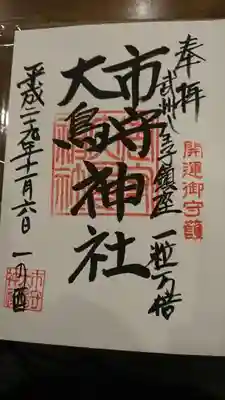 奉拝
武州八王子鎮座 一粒万倍
開運御守護
市守神社
大鳥神社
平成二十九年十一月六日 一の酉